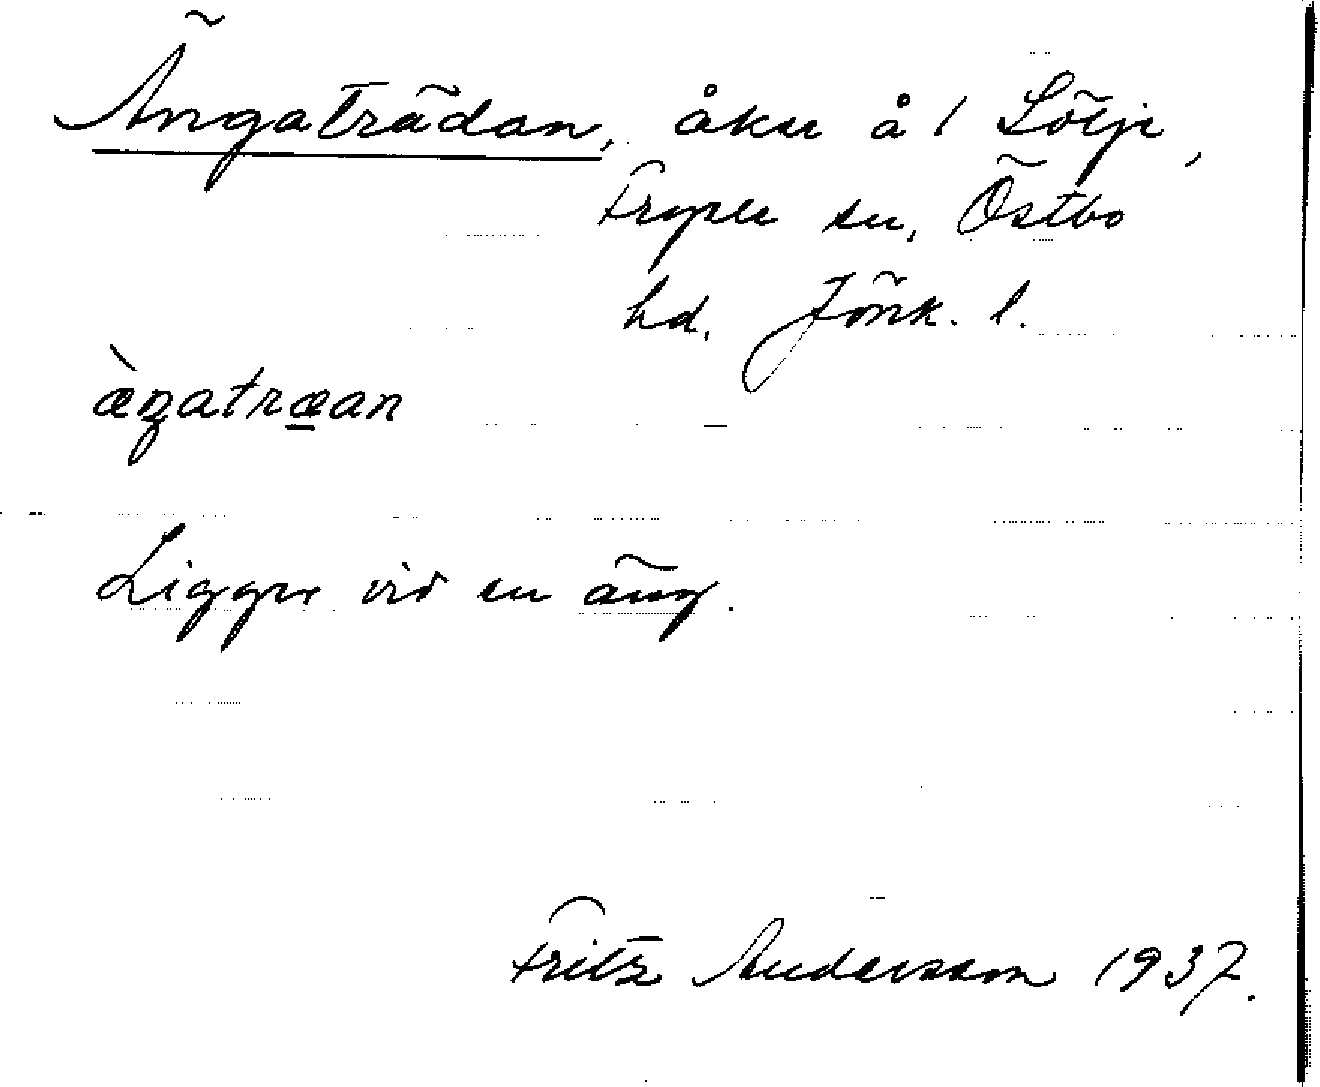 Ängaträdan, åker å 1 Sölje,
Fryele sn, Östbo
hd, Jönk. l.
æ̀ŋatræ̲an
Ligger vid en äng.
Fritz Andersson 1937.